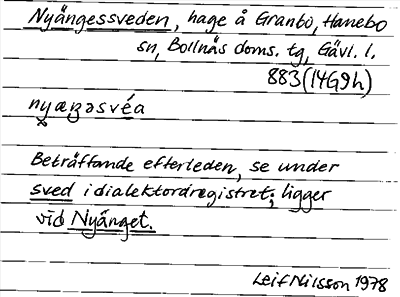 Nyängessveden, hage å Granbo, Hanebo
sn, Bollnäs doms. tg, Gävl. l.
883 (14G9h)
nyæŋəsvéa
Beträffande efterleden, se under
sved i dialektordregistret; ligger
vid Nyänget.
Leif Nilsson 1978